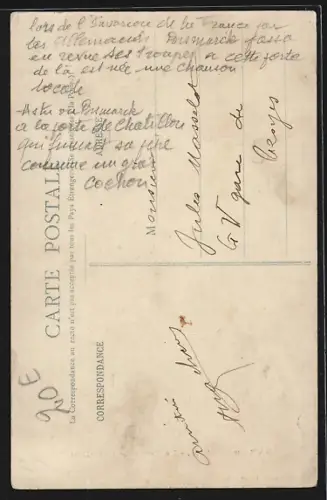 lors de l'invasion de la France par
les Allemands Bismarck passa
en revue ses troupes a cette porte
de là est née une chanson
locale
- As tu vu Bismarck
a la porte de Chatillon
qui fumait sa pipe
comme un gros
cochon
CARTE POSTALE
La Correspondance au recto n'est pas acceptée par tous les Pays Étrangers
ADRESSE
Monsieur
Jules Masselot
G V gare de
Troyes
CORRESPONDANCE
20 E